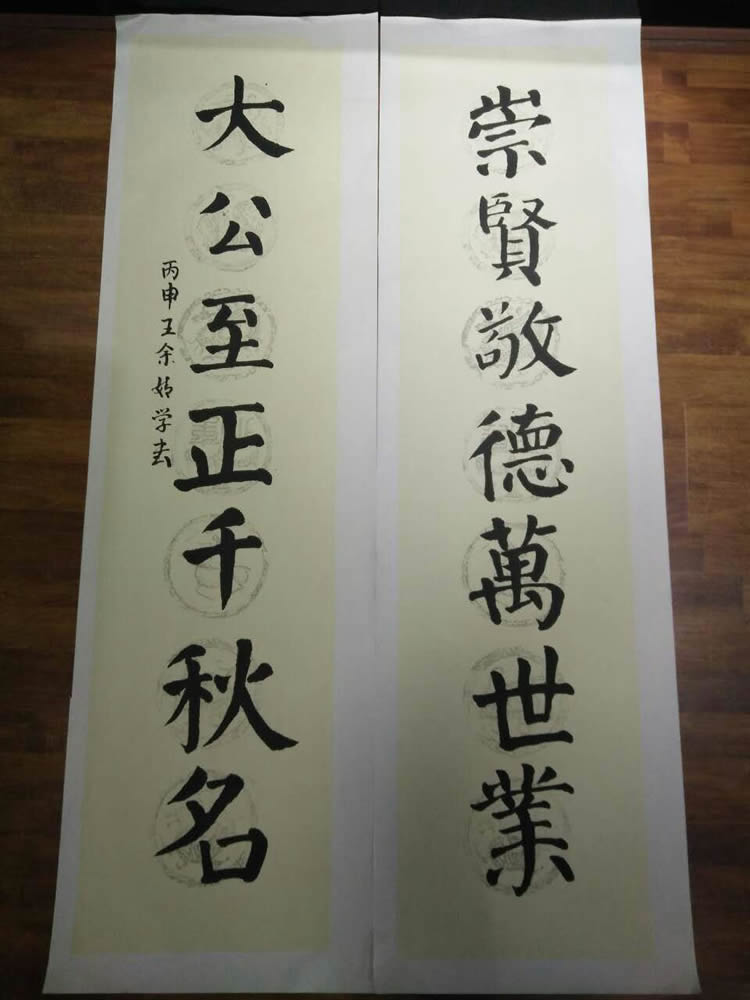 崇賢敬德萬世業
大公至正千秋名
丙申王余婷学书